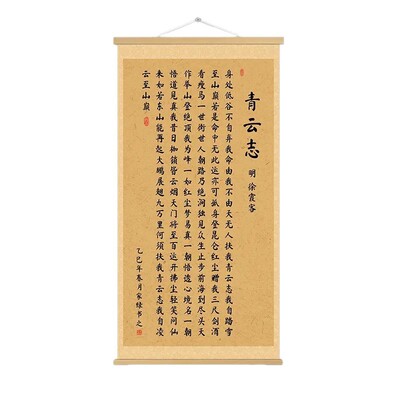 青云志
明 徐霞客
身处低谷不自弃我命由我不由天无人扶我青云志我自踏雪
至山巅若是命中无此运亦可孤身登昆仑红尘赠我三尺剑酒
看瘦马一世街世人朝路乃绝涧独见众生止步前海到尽头天
作岸山登绝顶我为峰一如红尘梦易真一朝悟道心境名一朝
悟道见真我昔日枷锁皆云烟天门将至百运开拂尘轻笑问仙
来如若东山能再起大鹏展翅九万里何须扶我青云志我自凌
云至山巅
乙巳年春月家缘书之